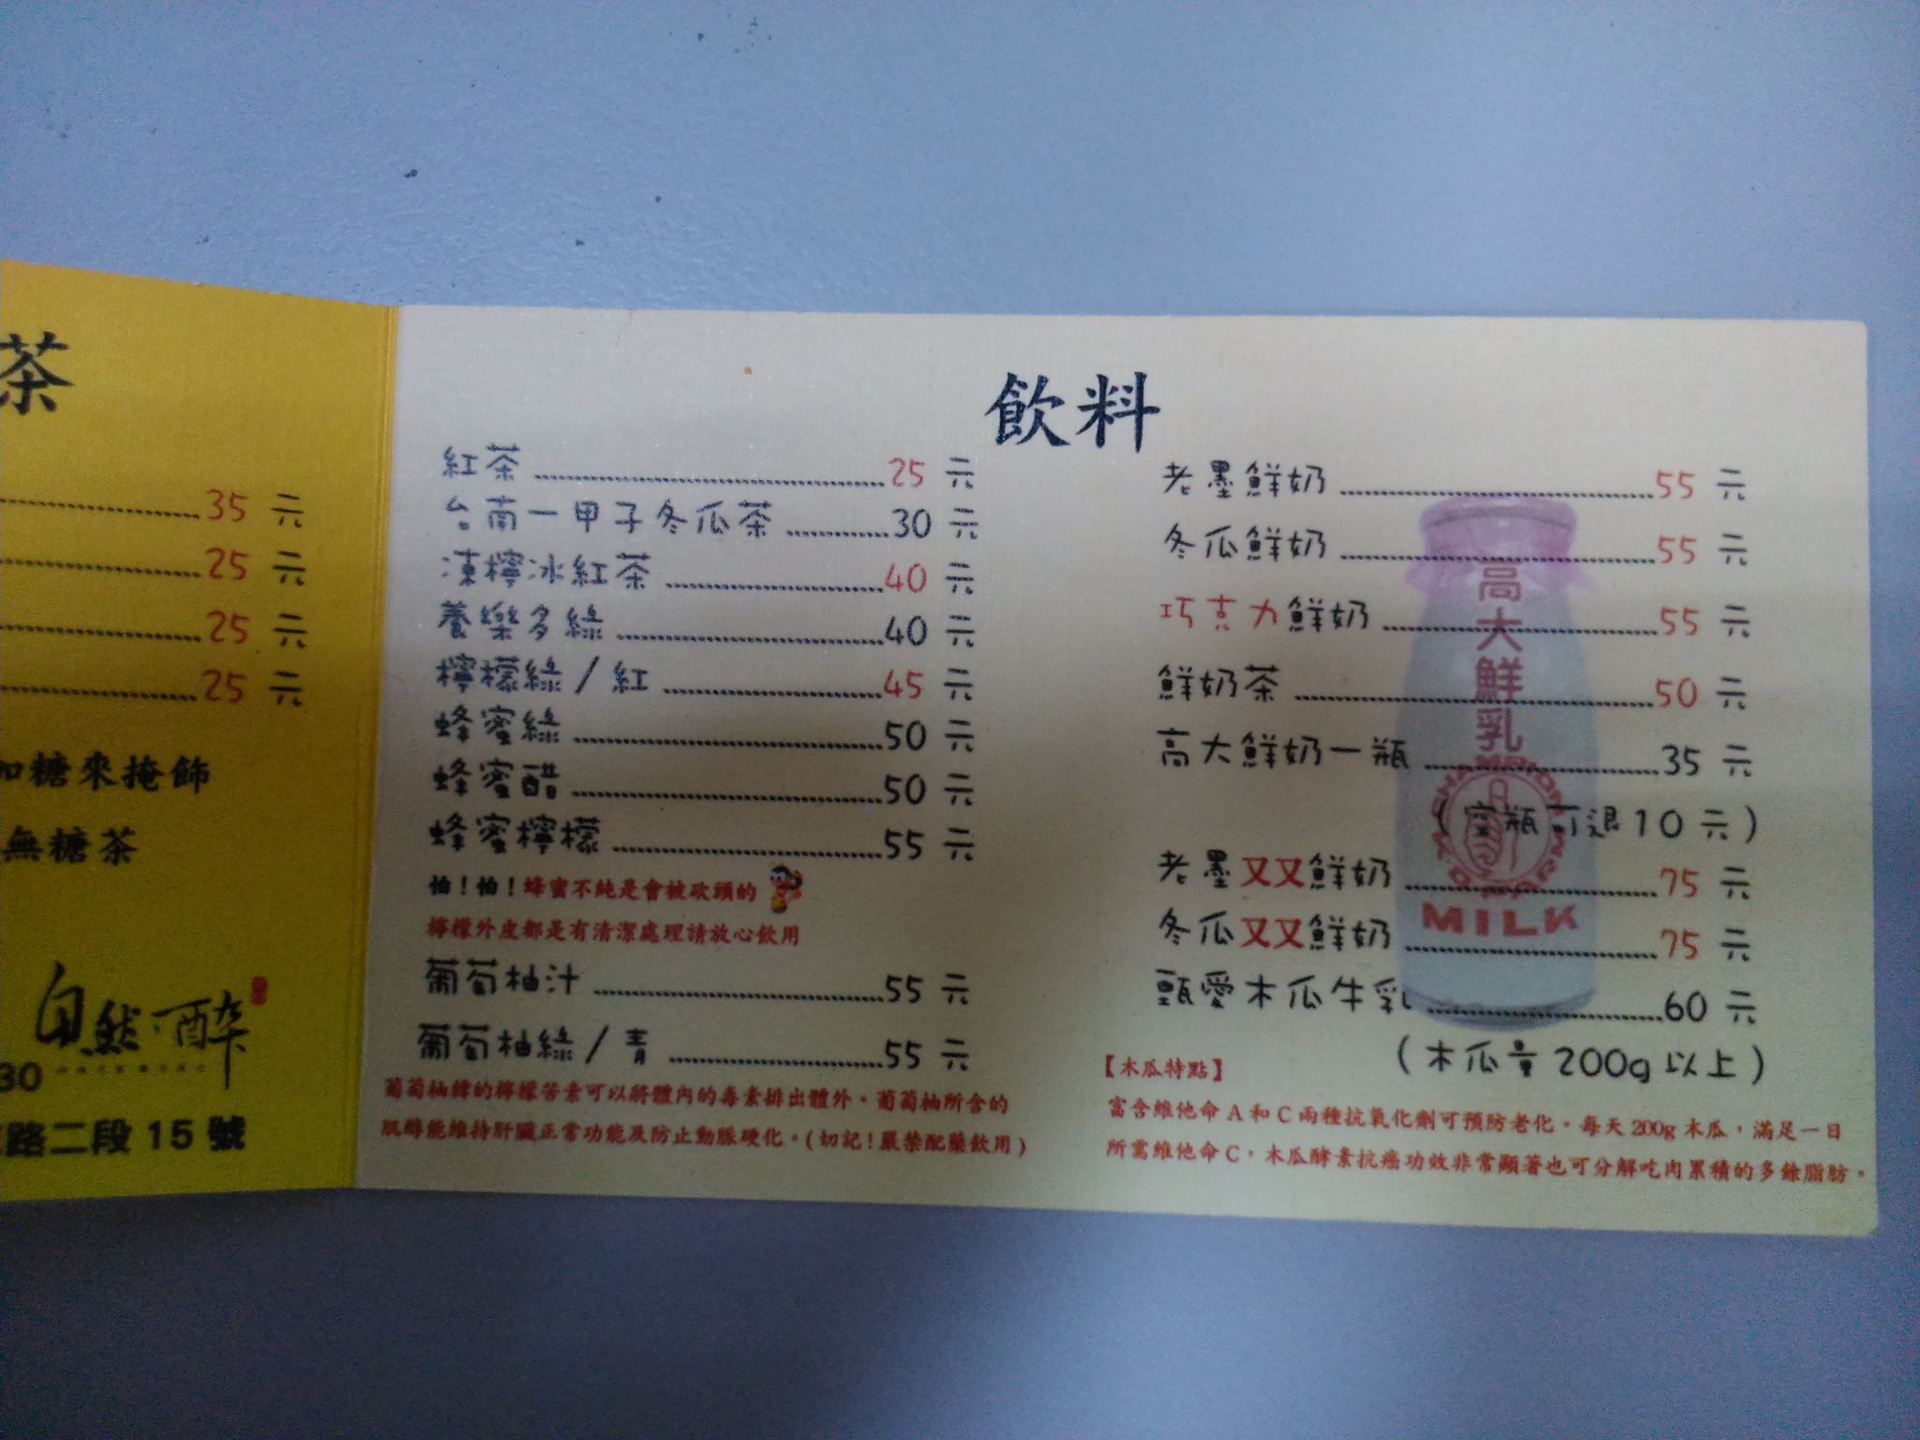 茶
35 元
25 元
25 元
25 元
加糖來掩飾
無糖茶
自然醉
30
路二段 15 號
飲料
紅茶 25 元
台南一甲子冬瓜茶 30 元
凍檸冰紅茶 40 元
養樂多綠 40 元
檸檬綠/紅 45 元
蜂蜜綠 50 元
蜂蜜醋 50 元
蜂蜜檸檬 55 元
怕!怕!蜂蜜不純是會被砍頭的
檸檬外皮都是有清潔處理請放心飲用
葡萄柚汁 55 元
葡萄柚綠/青 55 元
葡萄柚韓的檸檬苦素可以將體內的毒素排出體外。葡萄柚所含的
肌醇能維持肝臟正常功能及防止動脈硬化。(切記!嚴禁配藥飲用)
老墨鮮奶 55 元
冬瓜鮮奶 55 元
巧克力鮮奶 55 元
鮮奶茶 50 元
高大鮮奶一瓶 35 元
(空瓶可退10元)
老墨又又鮮奶 75 元
冬瓜又又鮮奶 75 元
甄愛木瓜牛乳 60 元
(木瓜量200g以上)
【木瓜特點】
富含維他命 A 和 C 兩種抗氧化劑可預防老化。每天 200g 木瓜,滿足一日
所需維他命 C,木瓜酵素抗癌功效非常顯著也可分解吃肉累積的多餘脂肪。
高大鮮乳
CHAMPION
MILK